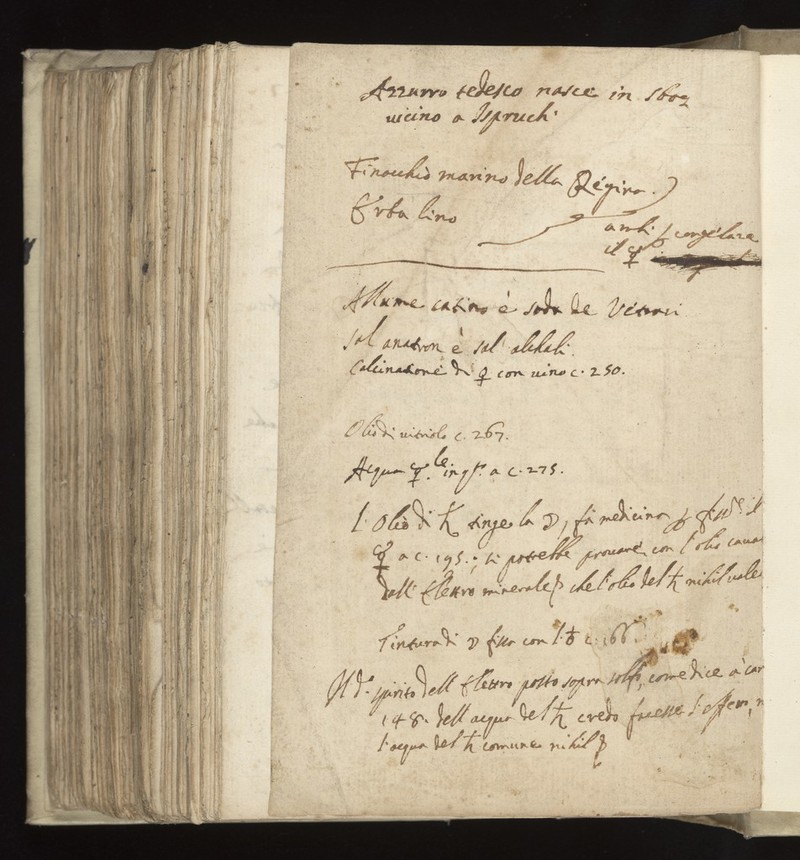 Azzurro tedesco nasce in Sboz
vicino a Ispruch.
Finocchio marino della Regina.
Erba lino
a mbi. congelara
il ☿
Allume catino è soda de Vetrari
Sal anatron è sal alchali.
Calcinatione di ☿ con vino c. 250.
Olio di vitriolo c. 267.
Acqua ☿le in a c. 275.
L'Olio di ♄ tinge la ☽, fà medicina il
☿ a c. 195.; si potrebbe provare con l'olio cavat
dall' Elettro minerale che l'olio del ♄ nihil vale
Tintura di ☽ fissa con l'♁ c. 166.
Il do. spirito dell' Elettro posto sopra come dice à car
148. dell' acqua del ♄ credo facesse l'effetto, n
l'acqua del ♄ comune nihil